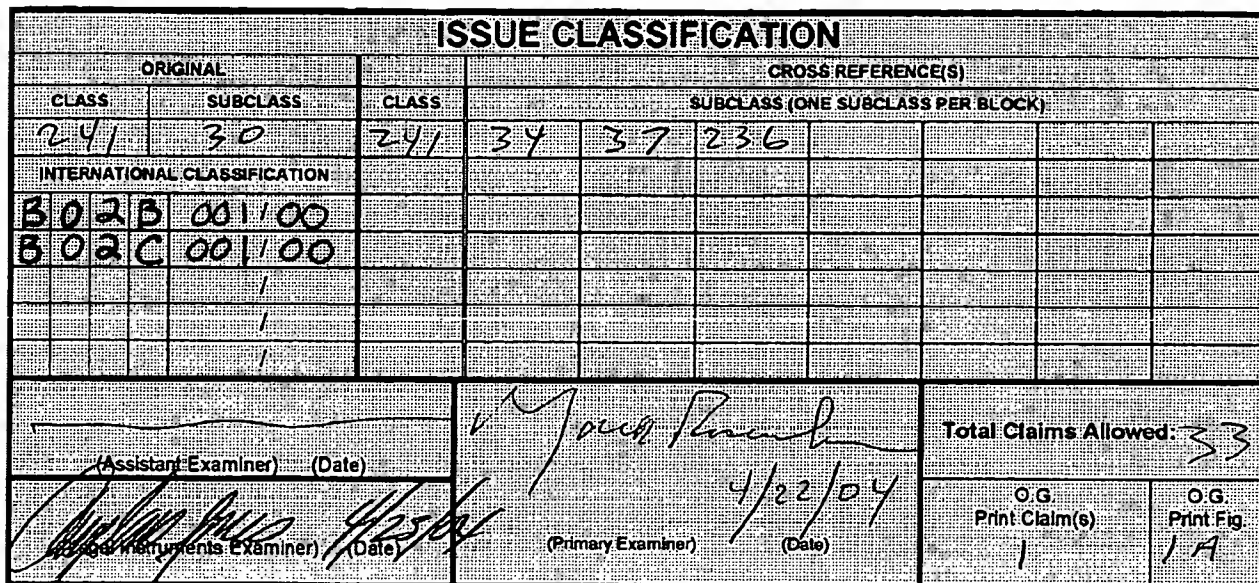 ISSUE CLASSIFICATION
ORIGINAL CROSS REFERENCE(S)
CLASS SUBCLASS CLASS SUBCLASS (ONE SUBCLASS PER BLOCK)
241 30 241 34 37 236
INTERNATIONAL CLASSIFICATION
B 0 2 B 001/00
B 0 2 C 001/00
/
/
/
(Assistant Examiner) (Date)
Total Claims Allowed: 33
4/22/04
(Legal Instruments Examiner) (Date) (Primary Examiner) (Date)
O.G. Print Claim(s) O.G. Print Fig.
1 1A